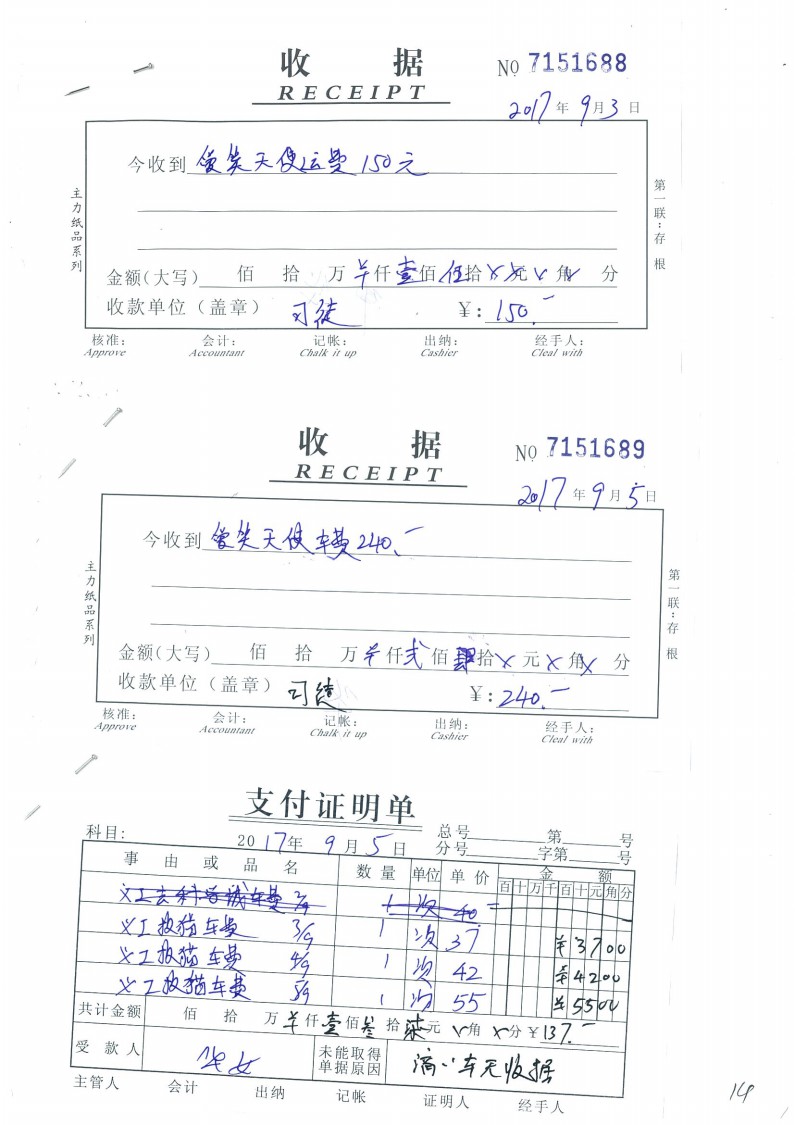 收 据 № 7151688
RECEIPT
2017年9月3日
今收到 爱笑天使运费150元
主力纸品系列
第一联:存根
金额(大写) 佰 拾 万 ¥仟壹佰伍拾×元×角×分
收款单位(盖章) 司徒 ¥: 150.—
核准: 会计: 记帐: 出纳: 经手人:
Approve Accountant Chalk it up Cashier Cleal with
收 据 № 7151689
RECEIPT
2017年9月5日
今收到 爱笑天使车费240.—
主力纸品系列
第一联:存根
金额(大写) 佰 拾 万 ¥仟弍佰肆拾×元×角×分
收款单位(盖章) 司徒 ¥: 240.—
核准: 会计: 记帐: 出纳: 经手人:
Approve Accountant Chalk it up Cashier Cleal with
支付证明单
科目: 2017年9月5日 总号 第 号
分号 字第 号
事由或品名 数量 单位 单价 金额
百十万千百十元角分
义工去科学城车费 1 次 40
义工救猫车费 3/9 1 次 37 ¥3700
义工救猫车费 4/9 1 次 42 ¥4200
义工救猫车费 5/9 1 次 55 ¥5500
共计金额 佰 拾 万 ¥仟壹佰叁拾柒元×角×分 ¥137.—
受款人 未能取得单据原因 滴滴车无收据
主管人 会计 出纳 记帐 证明人 经手人
14